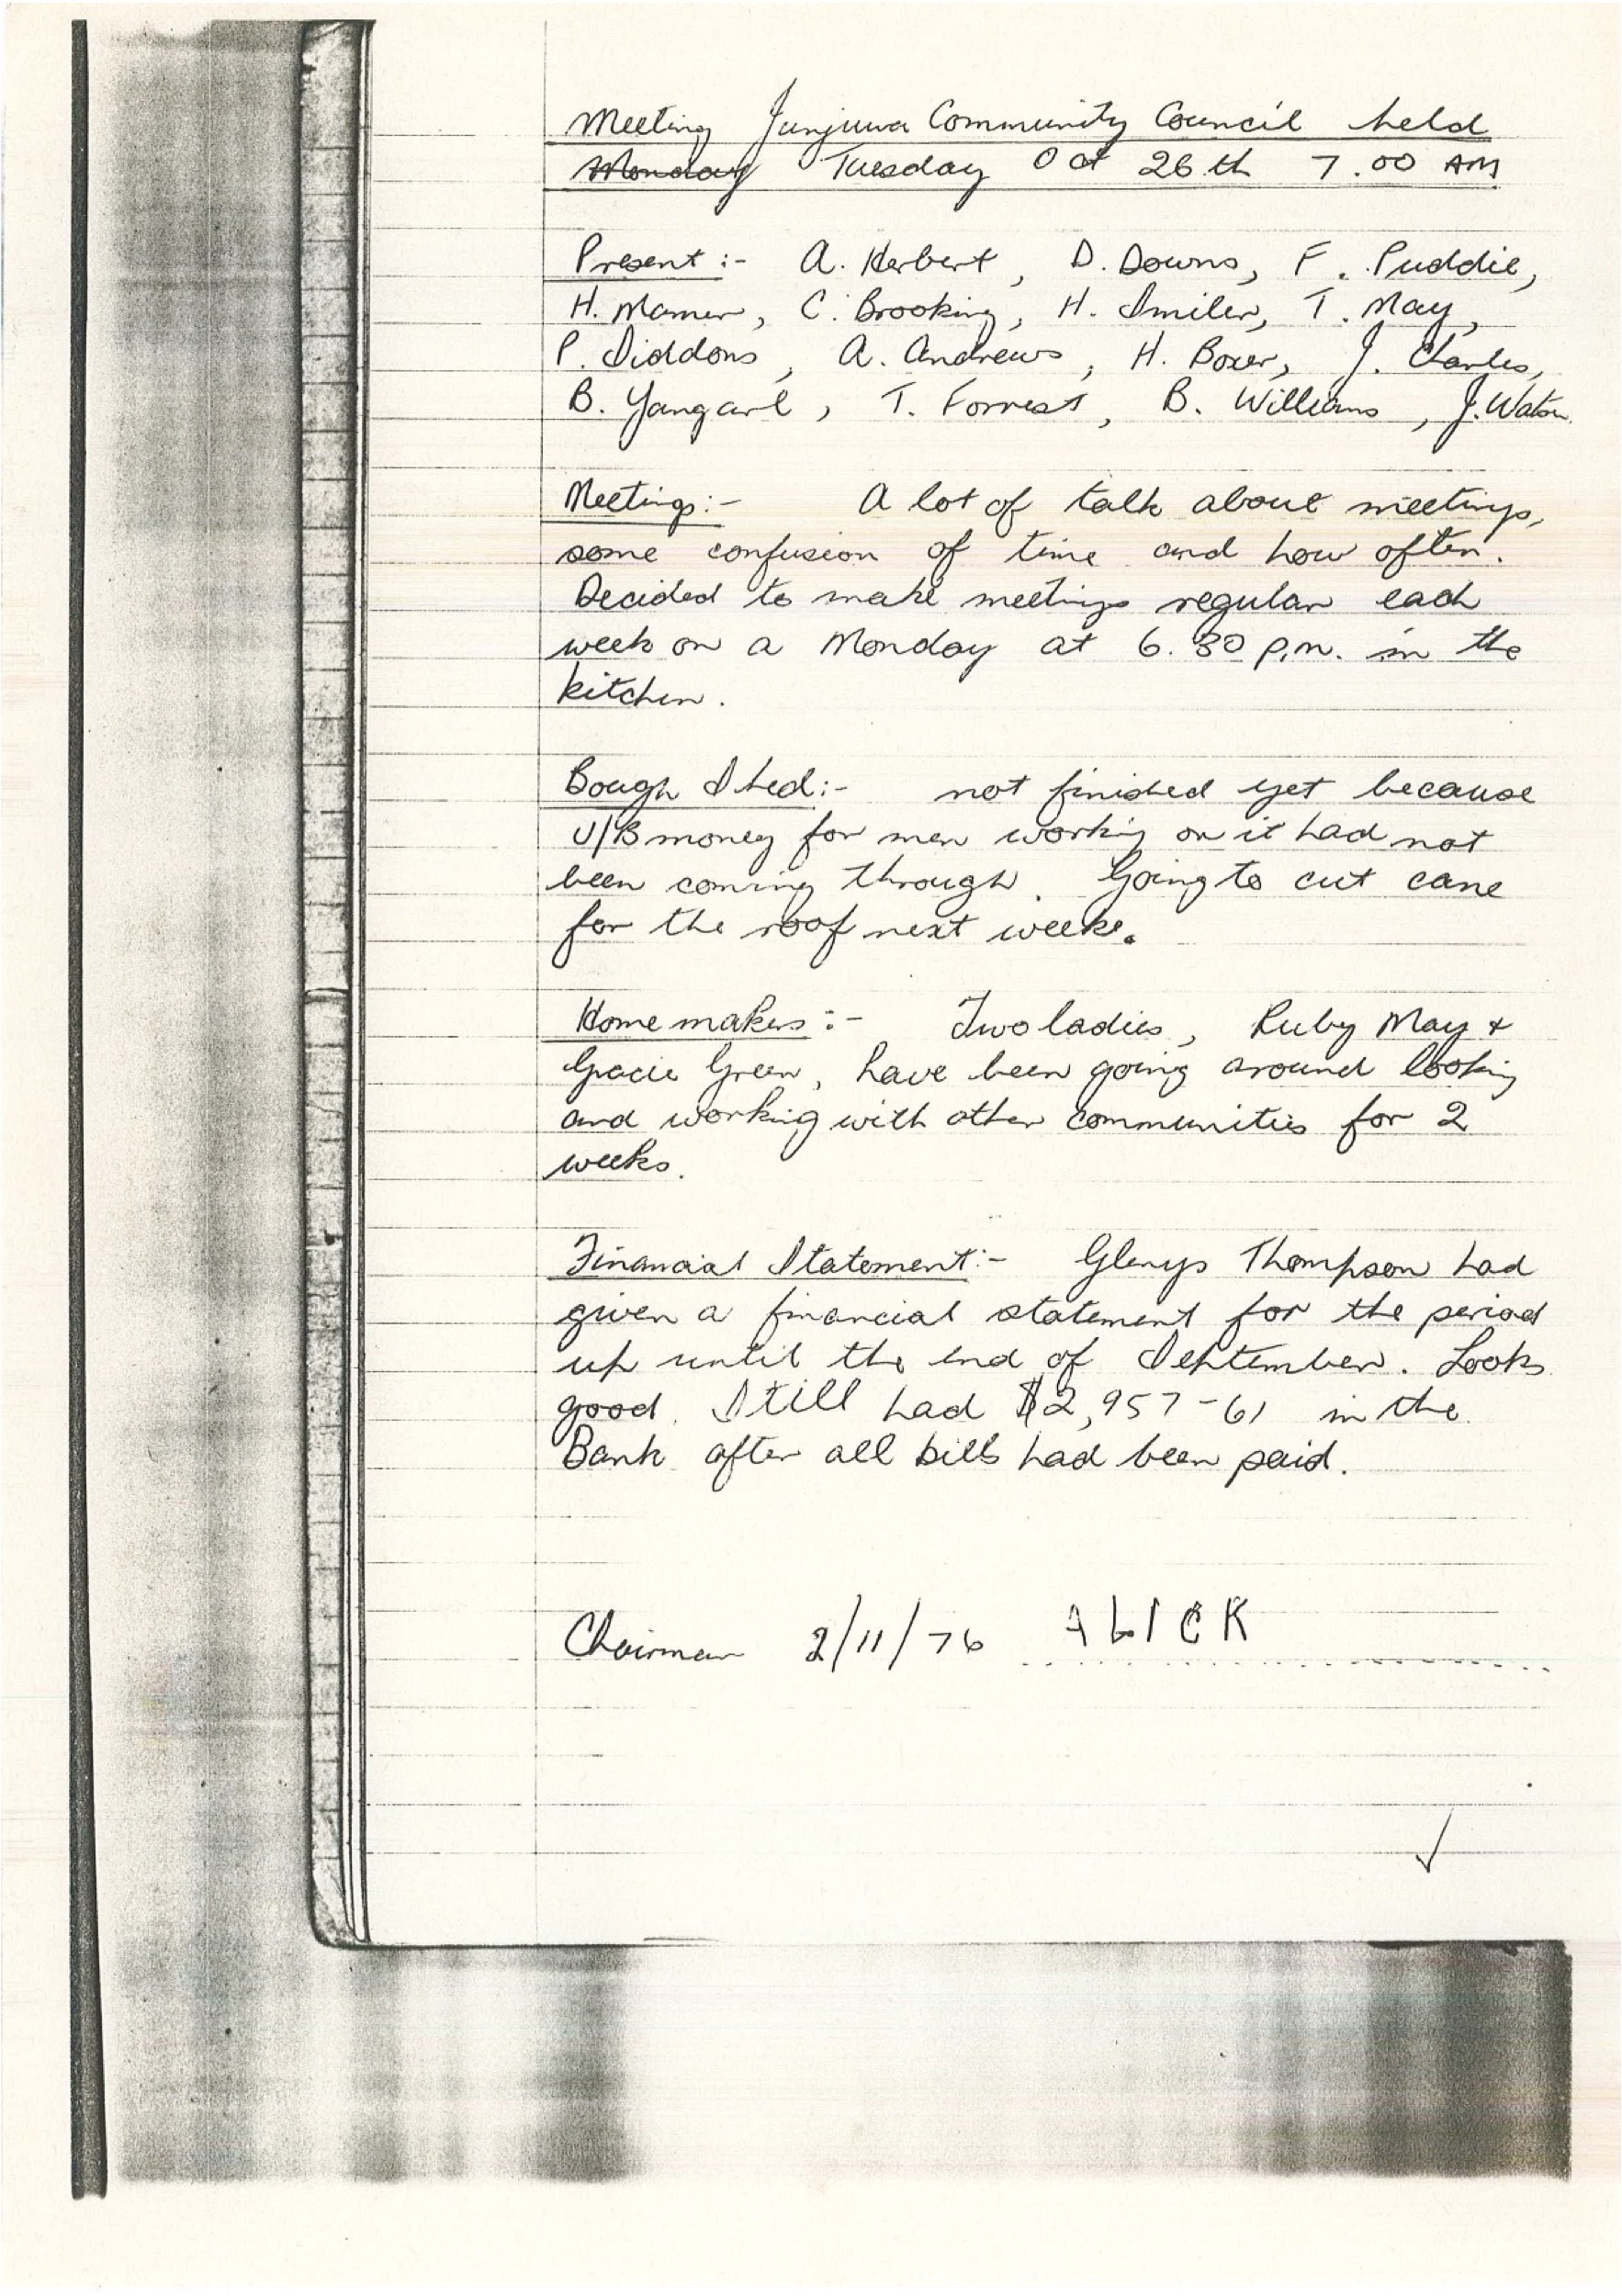 Meeting Junjuwa Community Council held
Monday Tuesday Oct 26th 7.00 AM
Present :- A. Herbert, D. Downs, F. Puddie,
H. Mamer, C. Brooking, H. Smiler, T. May,
P. Siddons, A. Andrews, H. Boxer, J. Charles,
B. Yangarl, T. Forrest, B. Williams, J. Watson.
Meetings:- A lot of talk about meetings,
some confusion of time and how often.
Decided to make meetings regular each
week on a Monday at 6.30 p.m. in the
kitchen.
Bough Shed:- not finished yet because
U/B money for men working on it had not
been coming through. Going to cut cane
for the roof next week.
Home makers :- Two ladies, Ruby May +
Gracie Green, have been going around looking
and working with other communities for 2
weeks.
Financial Statement:- Glenys Thompson had
given a financial statement for the period
up until the end of September. Looks
good. Still had $2,957-61 in the
Bank after all bills had been paid.
Chairman 2/11/76 ALICK